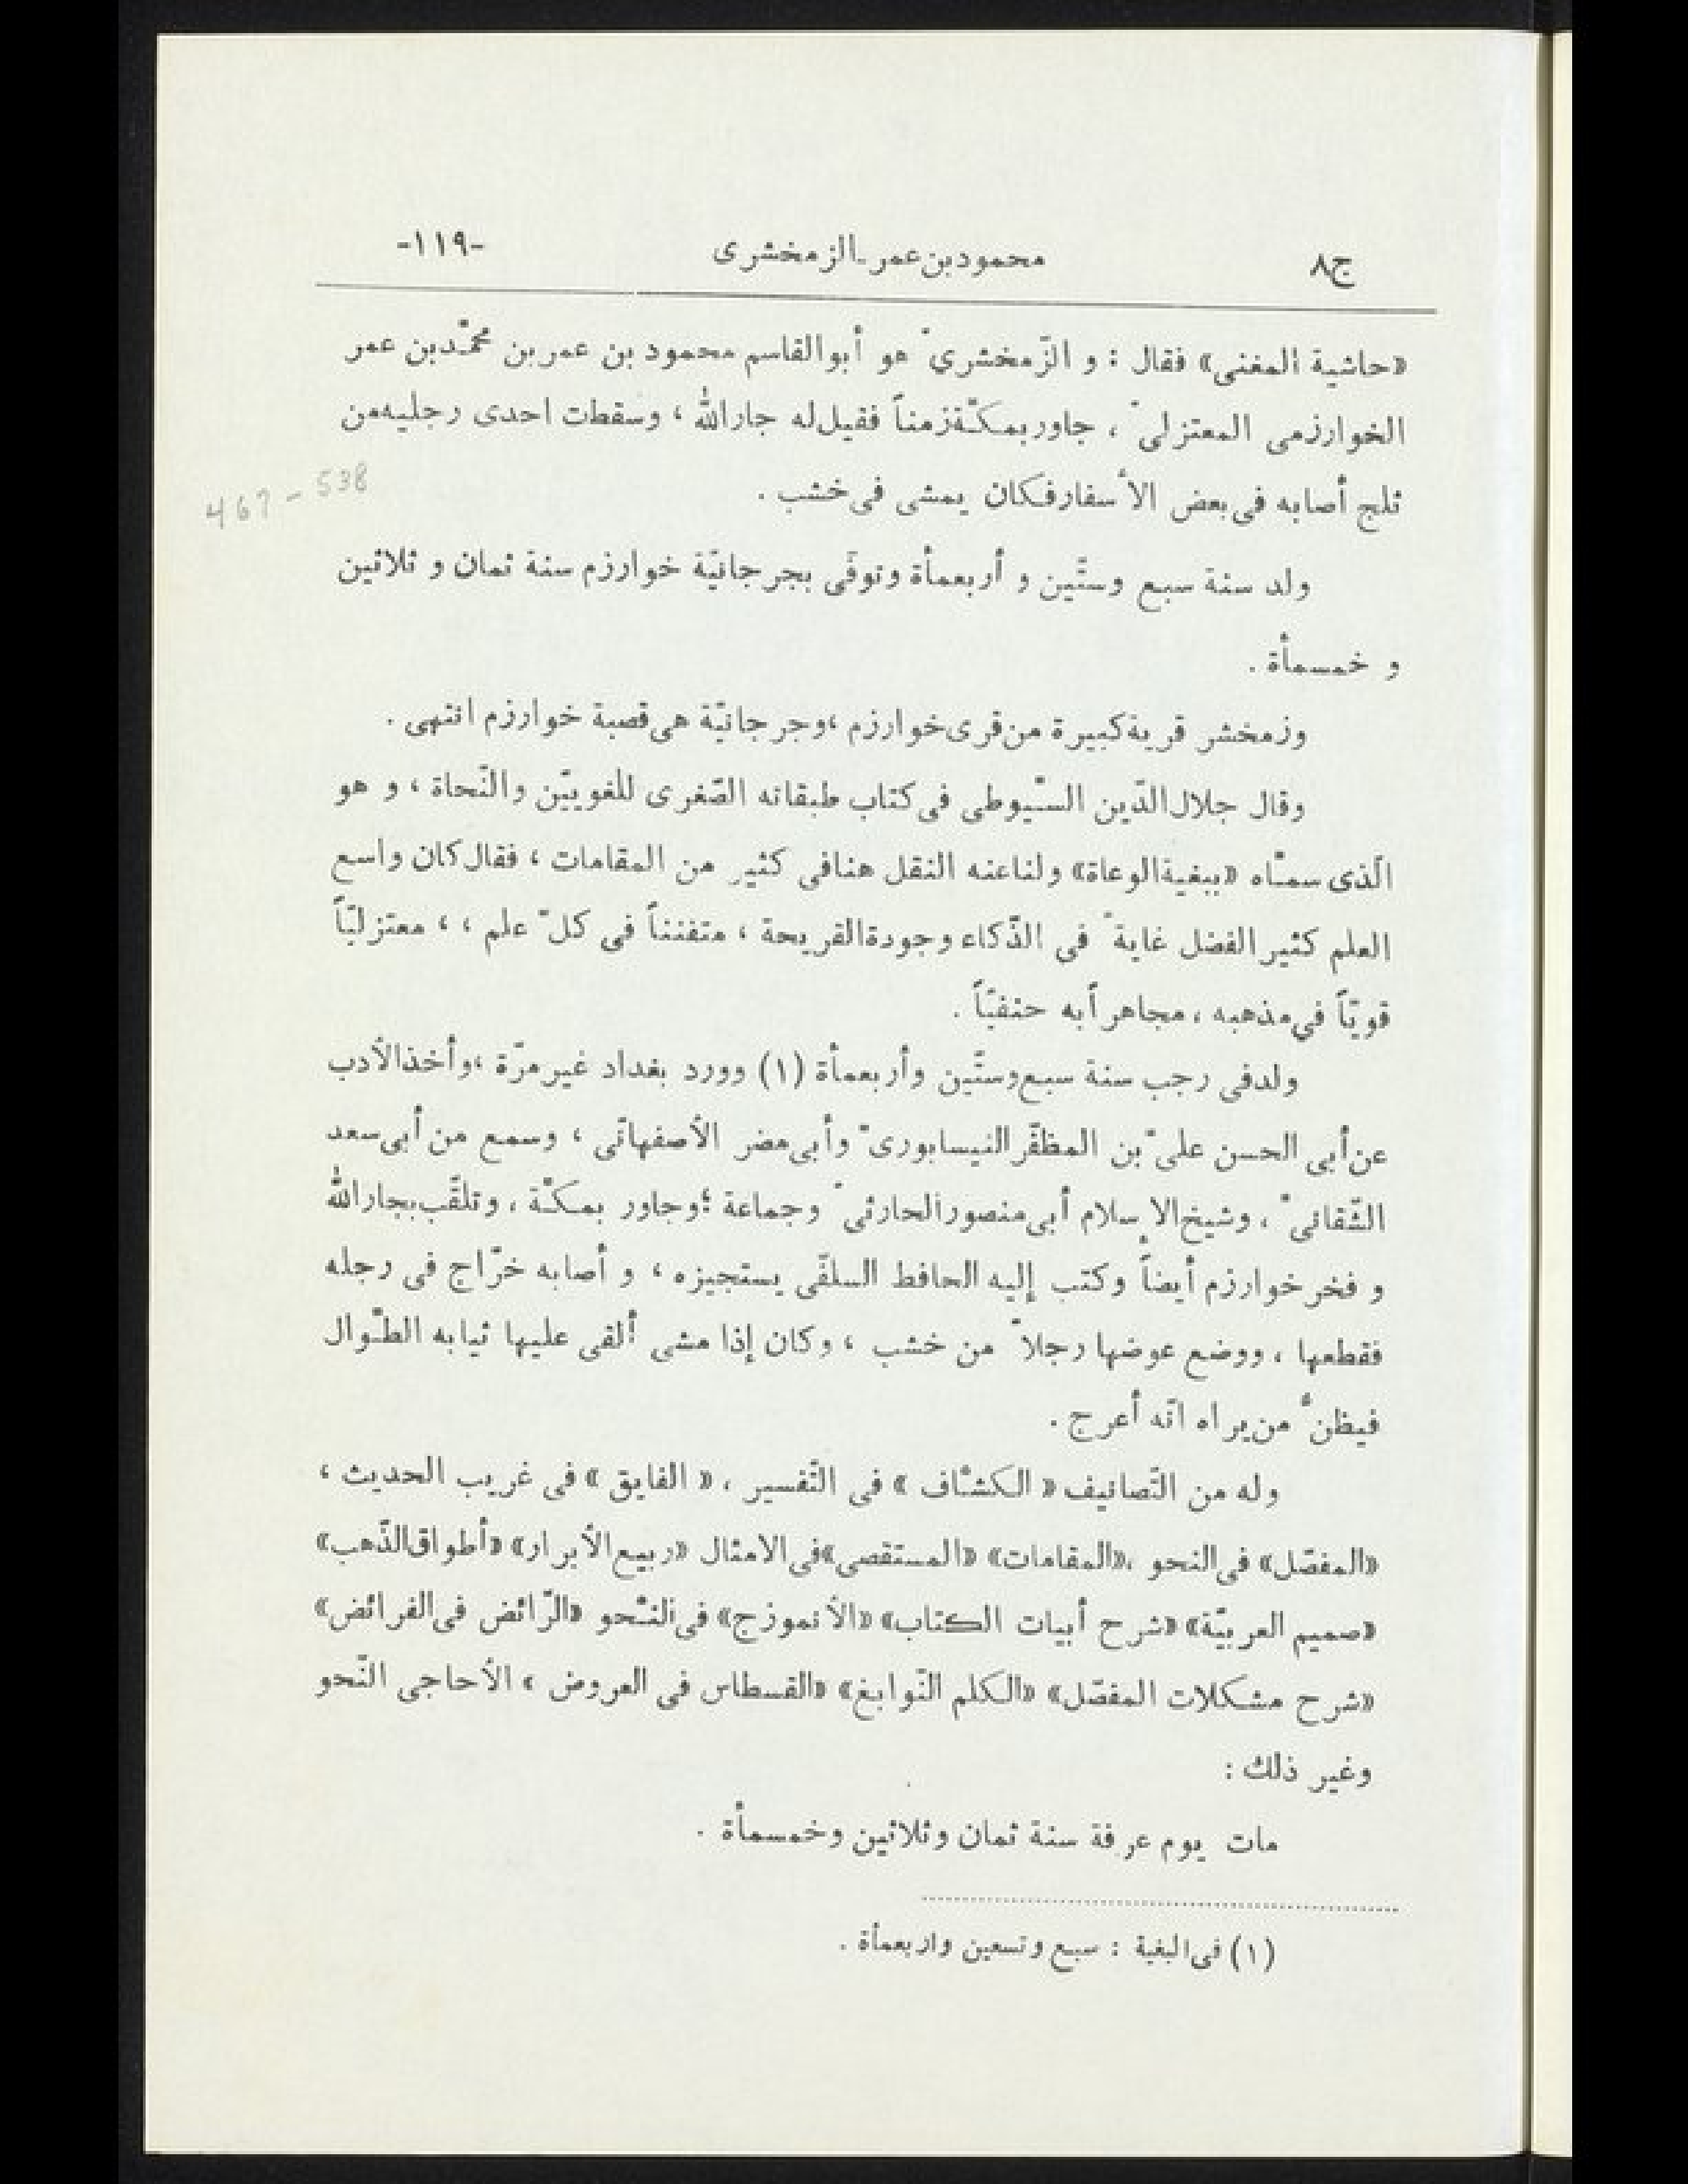 ج٨ محمودبن عمر ـ الزمخشرى -١١٩-
«حاشية المغنى» فقال : و الزّمخشريّ هو أبوالقاسم محمود بن عمر بن محمّدبن عمر
الخوارزمى المعتزلىّ ، جاور بمكّة زمناً فقيل له جارالله ، وسقطت احدى رجليه من
ثلج أصابه فى بعض الأسفار فكان يمشى فى خشب .
467 - 538
ولد سنة سبع وستّين و أربعمأة وتوفّى بجرجانيّة خوارزم سنة ثمان و ثلاثين
و خمسمأة .
وزمخشر قرية كبيرة من قرى خوارزم ،وجرجانيّة هى قصبة خوارزم انتهى .
وقال جلال الدّين السّيوطى فى كتاب طبقاته الصّغرى للغوييّن والنّحاة ، و هو
الّذى سمّاه «ببغية الوعاة» ولنا عنه النقل هنا فى كثير من المقامات ، فقال كان واسع
العلم كثير الفضل غايةً في الذّكاء وجودة القريحة ، متفنناً في كلّ علم ، ، معتزليّاً
قويّاً في مذهبه ، مجاهراً به حنفيّاً .
ولد فى رجب سنة سبع وستّين وأربعمأة (١) وورد بغداد غير مرّة ،وأخذ الأدب
عن أبى الحسن علىّ بن المظفّر النيسابورىّ وأبى مضر الأصفهانّى ، وسمع من أبى سعد
الشّقانىّ ، وشيخ الإسلام أبى منصور الحارثىّ وجماعة ؛وجاور بمكّة ، وتلقّب بجارالله
و فخر خوارزم أيضاً وكتب إليه الحافظ السلفّى يستجيزه ، و أصابه خرّاج فى رجله
فقطعها ، ووضع عوضها رجلاً من خشب ، وكان إذا مشى ألقى عليها ثيابه الطّوال
فيظنّ من يراه انّه أعرج .
وله من التّصانيف « الكشّاف » فى التّفسير ، « الفايق » فى غريب الحديث ،
«المفصّل» فى النحو ،«المقامات» «المستقصى»فى الامثال «ربيع الأبرار» «أطواق الذّهب»
«صميم العربيّة» «شرح أبيات الكتاب» «الأنموزج» فى النّحو «الرّائض فى الفرائض»
«شرح مشكلات المفصّل» «الكلم النّوابغ» «القسطاس فى العروض » الأحاجى النّحو
وغير ذلك :
مات يوم عرفة سنة ثمان وثلاثين وخمسمأة .
(١) فى البغية : سبع وتسعين واربعمأة .